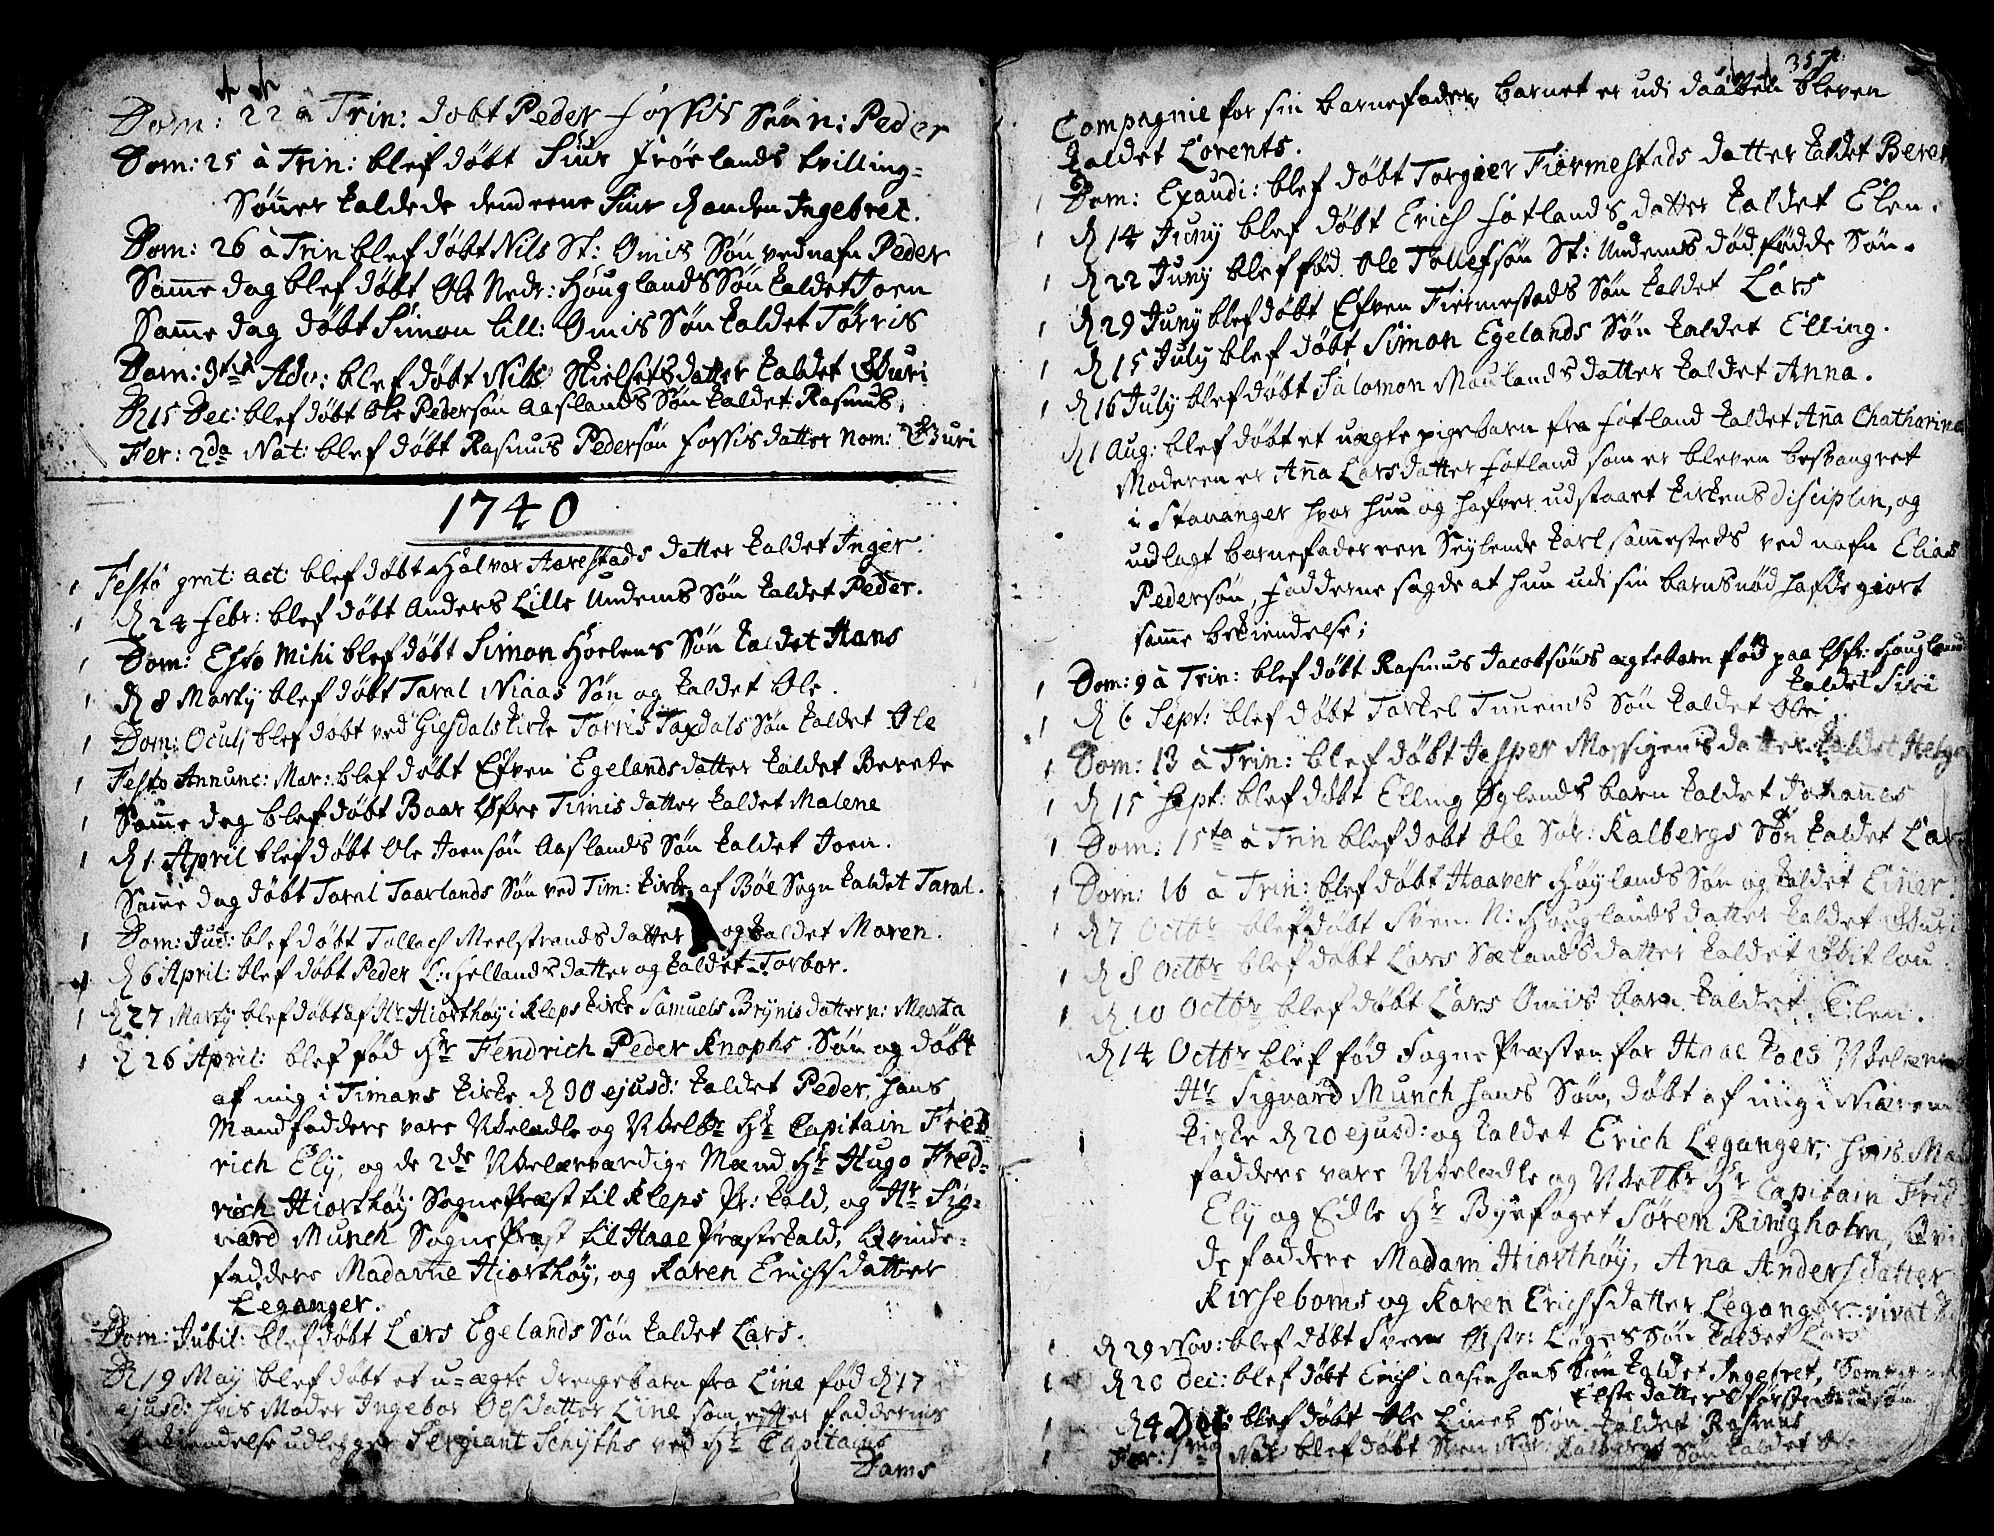 Dom: 22 à Trin: døbt Peder Fossis Søn n: Peder
Dom: 25 à Trin: blef døbt Siur Frøelands tvilling-
Sønner kaldede dend eene Siur d anden Ingebret.
Dom: 26 à Trin blef døbt Nils St: Omis Søn ved nafn Peder
Samme dag blef døbt Ole Nedr: Høuglands Søn kaldet Joen
Samme dag døbt Simon Lill: Omis Søn kaldet Tørris
Dom: 3tia Adv: blef døbt Nils datter kaldet Guri
D 15 Dec: blef døbt Ole Pedersøn Aaslands Søn kaldet Rasmus.
Fer: 2da Nat: blef døbt Rasmus Pedersøn Fossis datter Nom: Guri
1740
Festo act: blef døbt Halvor Aarestads datter kaldet Inger.
D 24 Febr: blef døbt Anders Lille Undems Søn kaldet Peder.
Dom: Esto Mihi blef døbt Simon Hoelens Søn kaldet Hans
D 8 Marty blef døbt Taral Niaas Søn og kaldet Ole.
Dom: Oculj blef døbt ved Giesdals kirke Tørris Taxdals Søn kaldet Ole
Festo Annunc: Mar: blef døbt Efven Egelands datter kaldet Berete
Samme dag blef døbt Baar Øfre Timis datter kaldet Malene
D 1 April blef døbt Ole Joensøn Aaslands Søn kaldet Joen.
Samme dag døbt Taral Taarlands Søn ved Tim: kirke af Bøe Sogn kaldet Taral.
Dom: Jud: blef døbt Tollach Meelstrands datter og kaldet Maren.
D 6 April: blef døbt Peder L: Hellands datter og kaldet Torbor.
D 27 Marty blef døbt af Hr Hiorthøy i Kleps kirke Samuels Brynis datter n: Marta
D 26 April: blef fød Hr Fendrich Peder Knophs Søn og døbt
af mig i Timans kirke d 30 ejusd: kaldet Peder, hans
Mandfaddere vare Velædle og Velbr Hr Capitain Fred-
rich Ely, og de 2de Velærværdige Mænd Hr Hugo Fred-
rich Hiorthøy Sogne Præst til Kleps Pr: kald, og Hr Sig-
vard Munch Sogne Præst til Haae Præstekald, Qvinde-
faddere Madame Hiorthøy, og Karen Erichsdatter
Leganger.
Dom: Jubil: blef døbt Lars Egelands Søn kaldet Lars.
D 19 May blef døbt et u-ægte drengebarn fra Line fød d 17
ejusd: hvis Moder Ingebor Olsdatter Line som efter faddernis
bekiendelse udlegger Sergiant Schyths ved Hr Capitains
Dams
357
Compagnie for sin barnefader, barnet er udi daaben bleven
kaldet Lorents.
Dom: Exaudi: blef døbt Torgier Fiermestads datter kaldet Beret
D 14 Juny blef døbt Erich Fotlands datter kaldet Elen.
D 22 Juny blef fød Ole Tollefsøn St: Undems dødfødde Søn.
D 29 Juny blef døbt Efven Fiermestads Søn kaldet Lars
D 15 July blef døbt Simon Egelands Søn kaldet Elling.
D 16 July blef døbt Salomon Maulands datter kaldet Anna.
D 1 Aug: blef døbt et uægte pigebarn fra Fotland kaldet Anna Chatharina
Moderen er Anna Larsdatter Fotland som er bleven besvangret
i Stavanger hvor hun og hafver udstaaet kirkens disciplin, og
udlagt barnefader een Seylende karl sammesteds ved nafn Elias
Pedersøn, Fadderne sagde at hun udi sin barnsnød hafde giort
samme bekiendelse;
Dom: 9 à Trin: blef døbt Rasmus Jacobsøns ægtebarn fød paa Øfr: Høugland
kaldet Siri
D 6 Sept: blef døbt Torkel Tunems Søn kaldet Ole.
Dom: 13 à Trin: blef døbt Jasper Mossigens datter kaldet Helge
D 15 Sept: blef døbt Elling Øglends barn kaldet Johannes
Dom: 15ta à Trin blef døbt Ole Sør: Kalbergs Søn kaldet Lars
Dom: 16 à Trin: blef døbt Haaver Høylands Søn og kaldet Einer
D 7 Octbr blef døbt Sven N: Høuglands datter kaldet Guri
D 8 Octbr blef døbt Lars Sælands datter kaldet
D 10 Octbr blef døbt Lars Omis barn kaldet Elen.
D 14 Octbr blef fød Sogne Præsten for Haae kald
Hr Sigvard Munch hans Søn, døbt af mig i Niærem
kirke d 20 ejusd: og kaldet Erich Leganger, hvis Man
faddere vare Velædle og Velbr Hr Capitain Frid
Ely og Edle Hr Byefoget Søren Ringholm, Qvin
defaddere Madam Hiorthøy, Ana Andersdatter
Kirseboms og Karen Erichsdatter Leganger. vivat
D 29 Nov: blef døbt Sven Østr: Løges Søn kaldet Lars
D 20 Dec: blef døbt Erich i Aasen hans Søn kaldet Ingebret,
D 4 Dec: blef døbt Ole Lines Søn kaldet Rasmus
Fer: 1ma Nat: blef døbt Sven Kalbergs Søn kaldet Ole